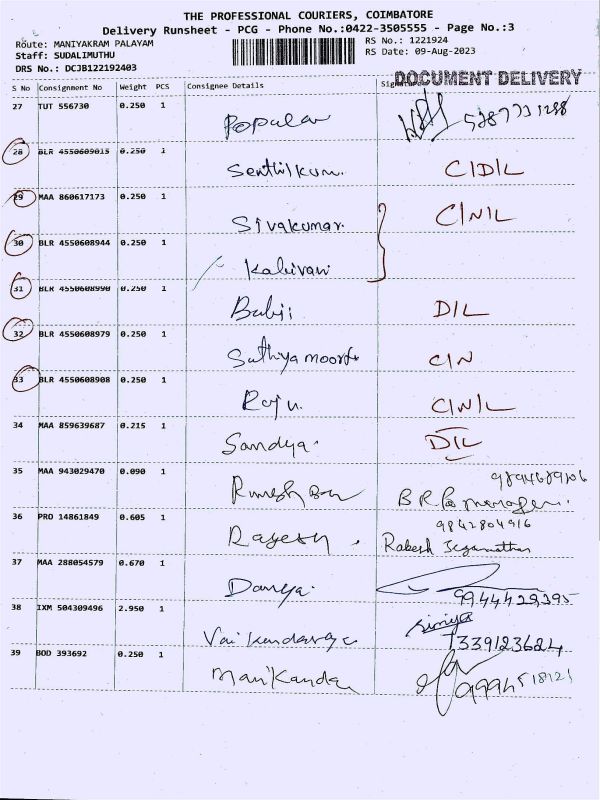 THE PROFESSIONAL COURIERS, COIMBATORE
Delivery Runsheet - PCG - Phone No.:0422-3505555 - Page No.:3
Route: MANIYAKRAM PALAYAM RS No.: 1221924
Staff: SUDALIMUTHU RS Date: 09-Aug-2023
DRS No.: DCJB122192403
DOCUMENT DELIVERY
S No Consignment No Weight PCS Consignee Details
27 TUT 556730 0.250 1
Popular
28 BLR 4550609015 0.250 1
Senthilkum. C/D/L
29 MAA 860617173 0.250 1
Sivakumar. C/N/L
30 BLR 4550608944 0.250 1
31 BLR 4550608990 0.250 1
Babji D/L
32 BLR 4550608979 0.250 1
Sathiyamoort C/N
33 BLR 4550608908 0.250 1
Raju C/N/L
34 MAA 859639687 0.215 1
Sandya. D/L
35 MAA 943029470 0.090 1
36 PRO 14861849 0.605 1
9842804916
Rajesh. Rakesh Jeganathan
37 MAA 288054579 0.670 1
Danya. 9944429395
38 IXM 504309496 2.950 1
7339123624
39 BOD 393692 0.250 1
Manikanda